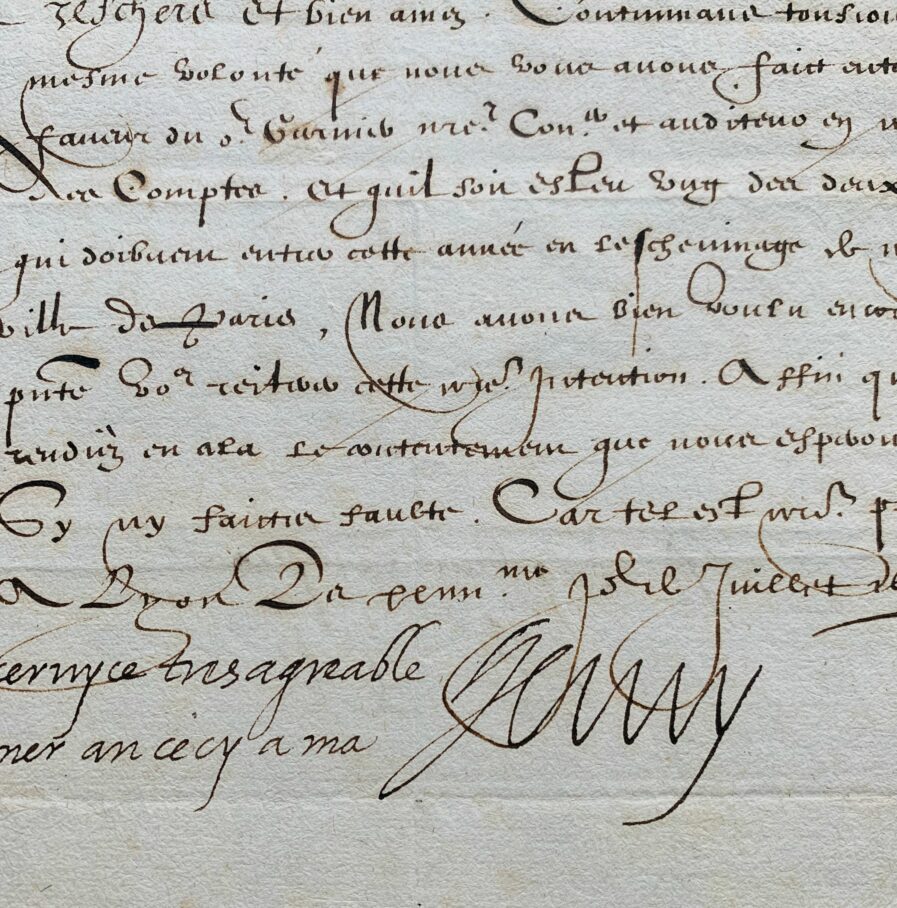 Treschers et bien amez. Continuans tousiou
mesme volonté que nous vous auons faict ente
faueur du sr. Garnier nre. Conr. et auditeur en n
des Comptes. Et quil soit esleu vng des deux
qui doibuent entrer cette année en lescheuinage de n
ville de Paris, Nous auons bien voulu encor
pnte vor reiterer cette nre. Intention. Affin qu
rendiez en cela le contentement que nous esperon
Sy ny faictes faulte. Car tel est nre. p
A Lyon Le me Jor de Juillet de
seruyce tresagreable Henry
ner an cecy a ma